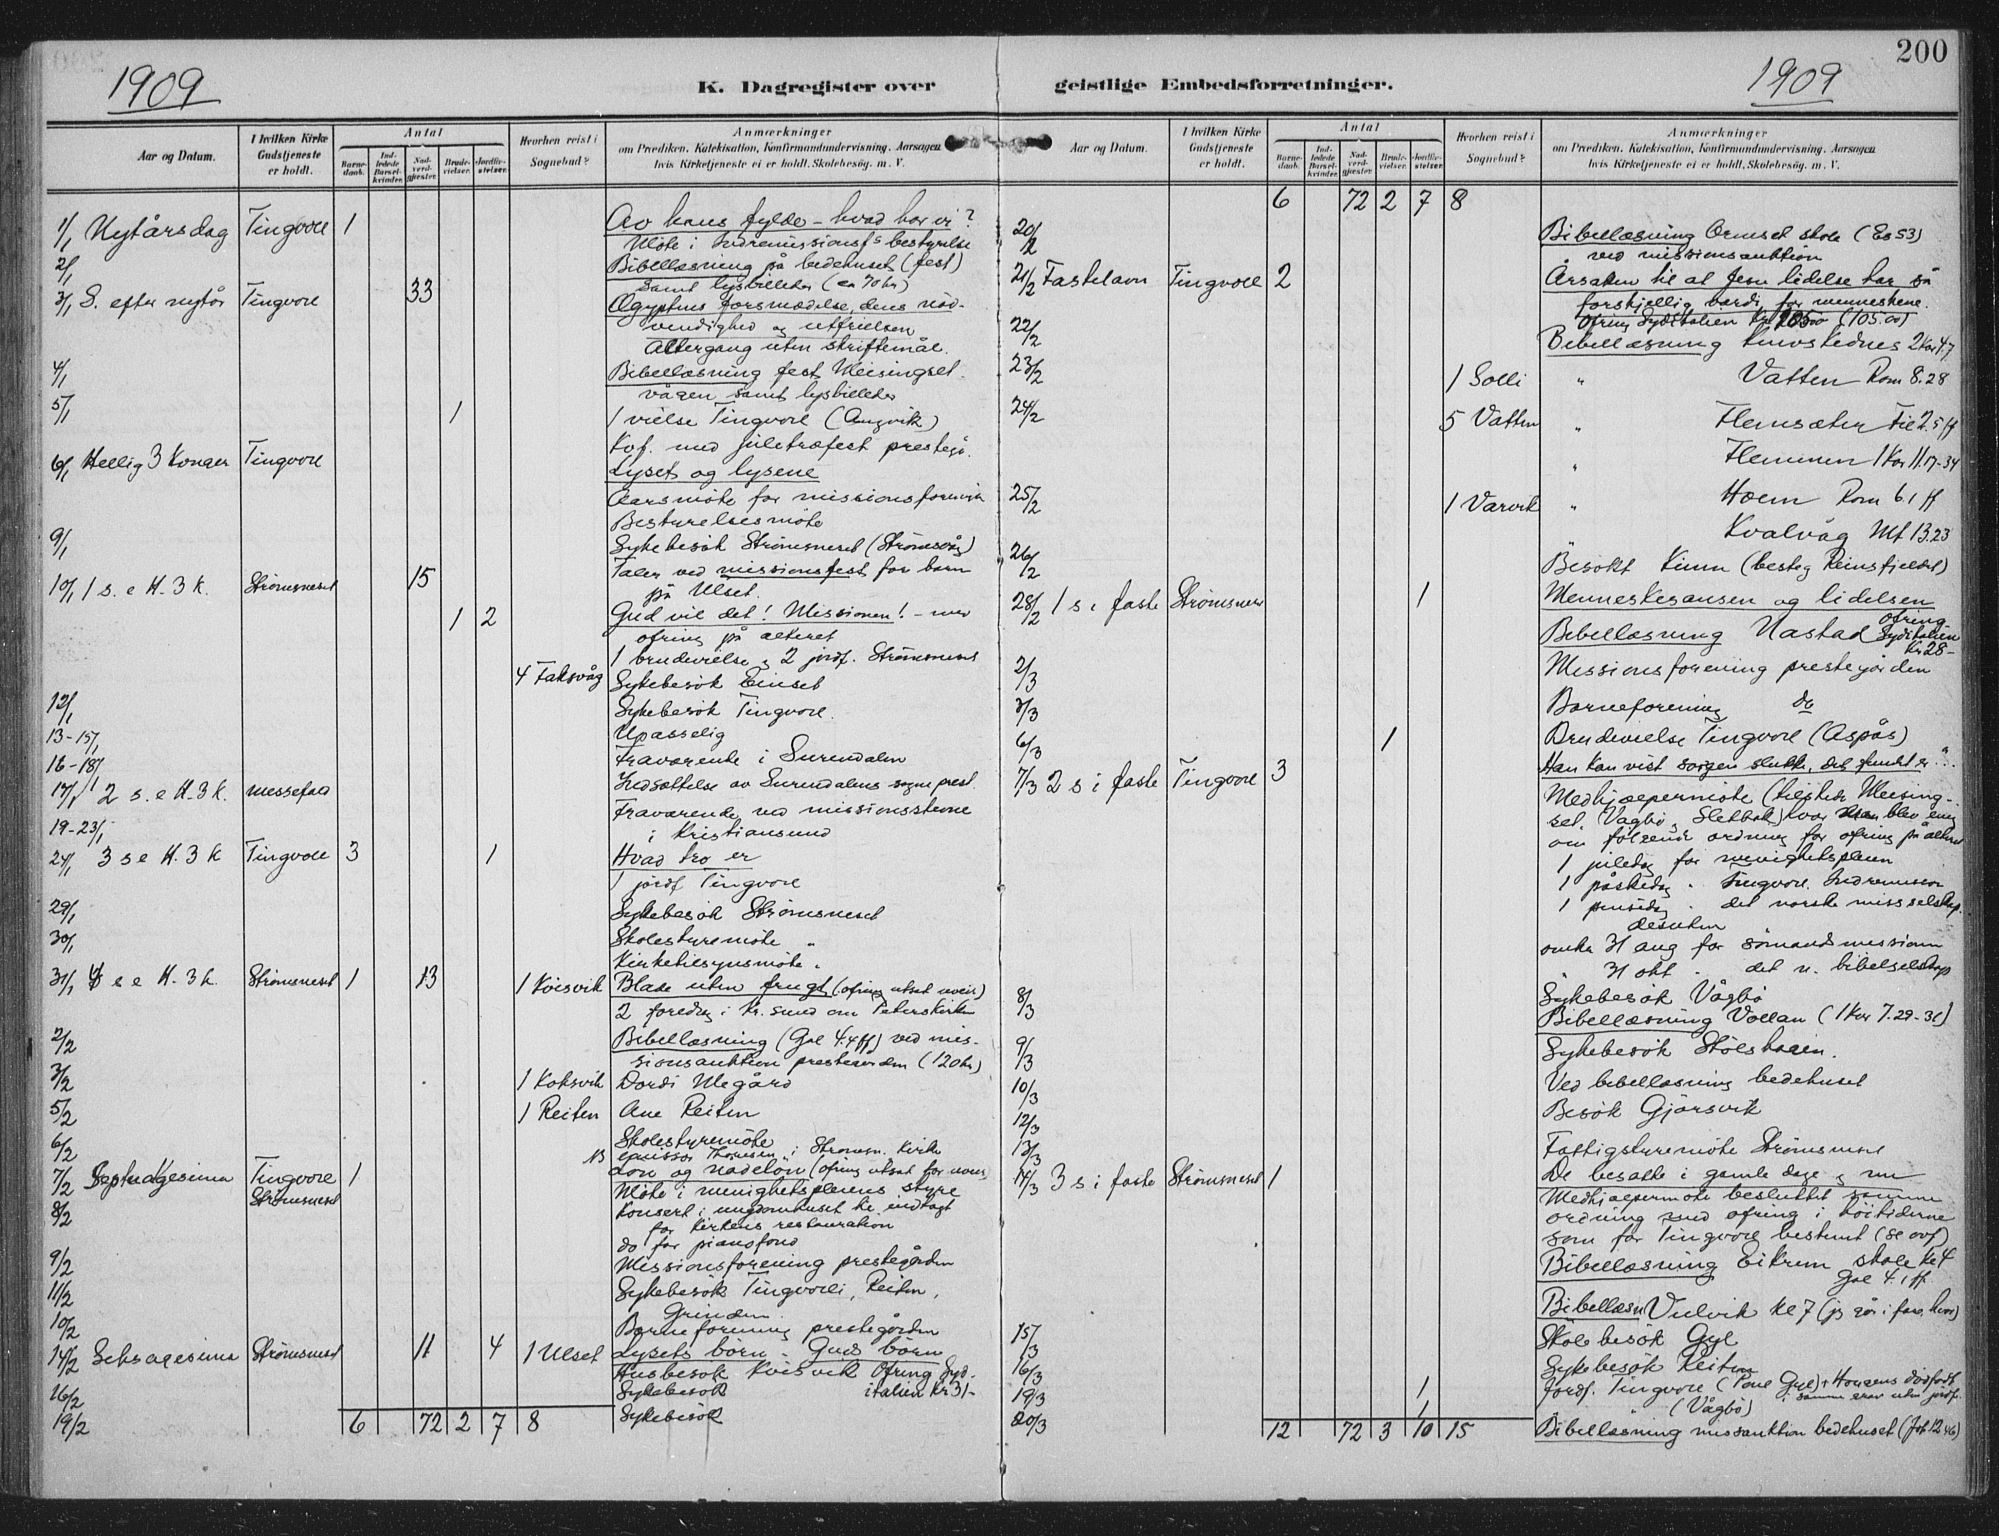 200
1909
K. Dagregister over geistlige Embedsforretninger.
1909
Aar og Datum.
I hvilken Kirke Gudstjeneste er holdt.
Antal
Barne-daab.
Ind-ledede Barsel-kvinder.
Nad-verd-gjester.
Brude-vielser.
Jordfæ-stelser.
Hvorhen reist i Sognebud?
Anmærkninger
om Prædiken. Katekisation, Konfirmandundervisning. Aarsagen
hvis Kirketjeneste ei er holdt. Skolebesög. m. V.
1/1 Nytårsdag Tingvoll 1 Av hans fylde – hvad har vi?
Møte i Indremissionsfs bestyrelse
2/1 Bibellæsning på bedehuset (fest)
samt lysbilleder (ca 70 kr)
3/1 S. efter nytår Tingvoll 33 Ægyptens fornedelse, dens nød-
vendighed og utfrielsen
Altergang uten skriftemål.
4/1 Bibellæsning fest Meisingset-
vågen samt lysbilleder
5/1 1 1 vielse Tingvoll (Angvik)
Kof. med juletræfest prestegå.
6/1 Hellig 3 Konger Tingvoll Lyset og lysene
Aarsmøte for missionsforenin
Bestyrelsesmøte
9/1 Sykebesøk Strømsneset (Strømsvåg)
Taler ved missionsfest for barn
på Ulset.
10/1 1 s. e H. 3 k. Strømsneset 15 Gud vil det! Missionen! – med
ofring på alteret
1 2 1 brudevielse og 2 jordf. Strømsneset
4 Faksvåg Sykebesøk Einset
12/1 Sykebesøk Tingvoll.
13-15/1 Upasselig
16-18/1 Fraværende i Surendalen
17/1 2 s. e H. 3 k. messefald Indsættelse av Surendalens sogneprest.
19-23/1 Fraværende ved missionsstevne
i Kristiansund
24/1 3 s e H. 3 k Tingvoll 3 1 Hvad tro er
1 jordf Tingvoll
29/1 Sykebesøk Strømsneset
30/1 Skolestyremøte "
Kirketilsynsmøte "
31/1 4 s e H. 3 k. Strømsneset 1 13 1 Koisvik Blade uten frugt (ofring utsat uveir)
2 foredrag i Kr. sund om Peterskirken
2/2 Bibellæsning (Gal 4.4 ff) ved mis-
sionsauktion prestegården (120 kr)
3/2 1 Koksvik Dordi Megård
5/2 1 Reiten Ane Reiten
6/2 Skolestyremøte
NB emissær Thomsen i Strømsn. Kirke
7/2 Septuagesima Tingvoll 1 Løn og nådeløn (ofring utsat for uveir)
Strømsneset Møte i menighetspleiens styre
8/2 Konsert i ungdomhuset til indtægt
for kirkens restauration
do for pianofond
9/2 Missionsforening prestegården
11/2 Sykebesøk Tingvoll, Reiten,
Grinden
10/2 Barneforening prestegården
14/2 Seksagesima Strømsneset 11 4 1 Ulset Lysets børn – Guds børn
Husbesøk Koisvik Ofring Syd-
16/2 Sykebesøk italien Kr 31-
19/2 Sykebesøk
6 72 2 7 8
Aar og Datum.
I hvilken Kirke Gudstjeneste er holdt.
Antal
Barne-daab.
Ind-ledede Barsel-kvinder.
Nad-verd-gjester.
Brude-vielser.
Jordfæ-stelser.
Hvorhen reist i Sognebud?
Anmærkninger
om Prædiken. Katekisation, Konfirmandundervisning. Aarsagen
hvis Kirketjeneste ei er holdt. Skolebesög. m. V.
6 72 2 7 8
20/2 Bibellæsning Ormset skole (Es 53)
ved missionsauktion
21/2 Fastelavn Tingvoll 2 Årsaken til at Jesu lidelse har så
forskjellig værdi for menneskene.
Ofring Syditalien Kr 105.00 (105.00)
22/2 Bibellæsning 2 Kor 4.7
23/2 1 Solli " Vatten Rom 8.28
24/2 5 Vatten " Flemsæter Fil 2.5 ff
" Flemmen 1 Kor 11.17-34
25/2 1 Varvik " Hoem Rom 6.1 ff
Kvalvåg Mt 13.23
26/2 Besøkt Kinn (besteg Reinsfjeldet)
28/2 1 s i faste Strømsnes 1 Menneskesønnen og lidelsen
Ofring
Bibellæsning Nastad Syditalien
Kr 28-
2/3 Missionsforening prestegården
3/3 Barneforening do
6/3 1 Brudevielse Tingvoll (Aspås)
7/3 2 s i faste Tingvoll 3 Han kan vist sorgen slukke, det fundet er ...
Medhjælpermøte (tilstede Meising-
set, Vågbø, Sletbak) hvor man blev enig
om følgende ordning for ofring på alteret
1 juledag for menighetspleien
1 påskedag " Tingvoll Indremission
1 pinsedag " det norske misselskap.
desuten
omkr 31 aug for sømandsmissionen
" 31 okt " det n. bibelselskap
8/3 Sykebesøk Vågbø
Bibellæsning Vollan (1 Kor 7.29-31)
9/3 Sykebesøk Stølshagen.
10/3 Ved bibellæsning bedehuset
12/3 Besøk Gjørsvik
13/3 Fattigstyremøte Strømsneset
14/3 3 s i faste Strømsneset 1 De besatte i gamle dage og nu
Medhjælpermøte besluttet samme
ordning med ofring i høitiderne
som for Tingvoll bestemt (se ovf)
Bibellæsning Eikrem skole kl 4
Gal 4.1 ff.
Bibellæsn Vulvik kl 7
15/3 Skolebesøk Gyl
16/3 Sykebesøk Reiten
19/3 1 Jordf. Tingvoll (Paul Gyl) + Haugens dødfødt
samme grav uten jordf.
1 (Vågbø)
20/3 Bibellæsning missauktion bedehuset (Joh 12.46)
12 72 3 10 15